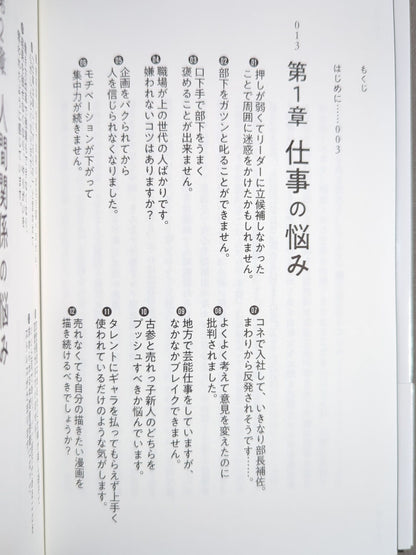 もくじ
はじめに……003
013
第1章 仕事の悩み
01
押しが弱くてリーダーに立候補しなかった
ことで周囲に迷惑をかけたかもしれません。
02
部下をガツンと叱ることができません。
03
口下手で部下をうまく
褒めることが出来ません。
04
職場が上の世代の人ばかりです。
嫌われないコツはありますか？
05
企画をパクられてから
人を信じられなくなりました。
06
モチベーションが下がって
集中力が続きません。
07
コネで入社して、いきなり部長補佐。
まわりから反発されそうです……。
08
よくよく考えて意見を変えたのに
批判されました。
09
地方で芸能仕事をしていますが、
なかなかブレイクできません。
10
古参と売れっ子新人のどちらを
プッシュすべきか悩んでいます。
11
タレントにギャラを払ってもらえず上手く
使われているだけのような気がします。
12
売れなくても自分の描きたい漫画を
描き続けるべきでしょうか？
人間関係の悩み